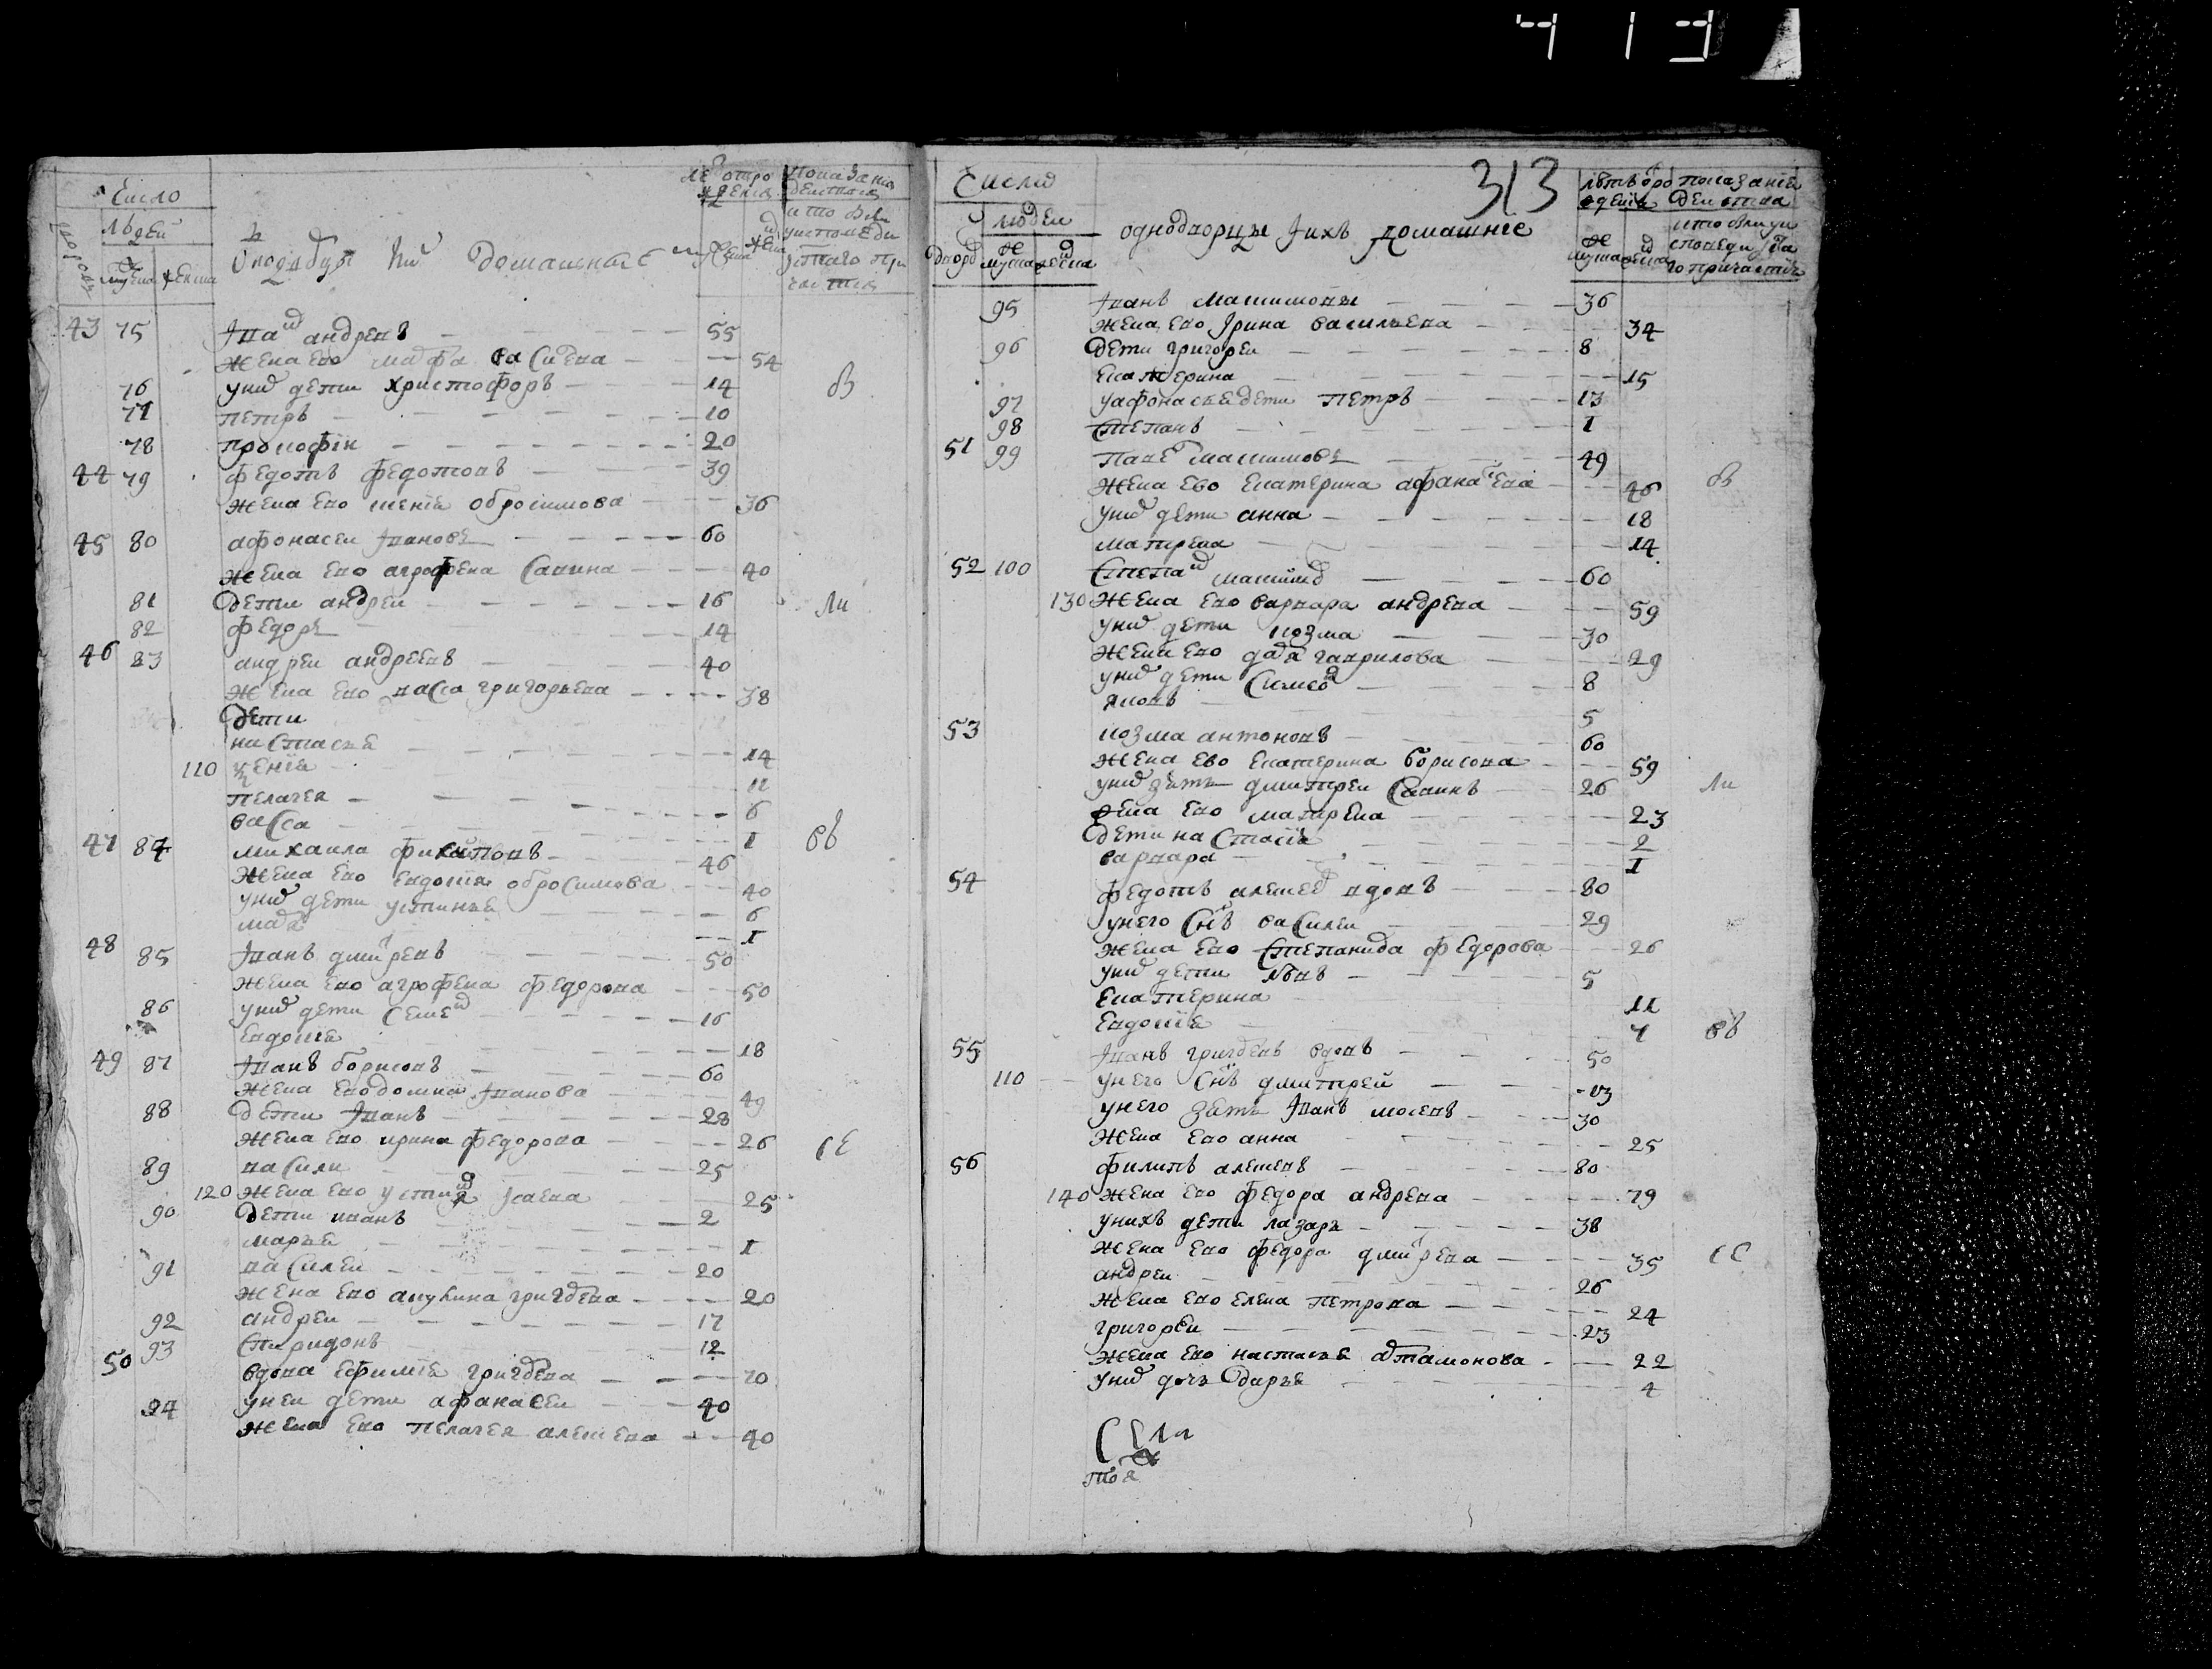 413
число
людей
дворовъ
мужеска
женска
домашные
лет от рождения
показание действа
43 75 Іван андреевъ 55
жена ево марфа васильева 54
76 у них дети христофоръ 14 въ
77 петръ 10
78 прокофіи 20
44 79 федотъ федотовъ 39
жена ево обросимова 36
45 80 афонасеи Івановъ 60
жена ево аграфена савина 40
81 дети андреи 16 ли
82 федоръ 14
46 83 андреи андреевъ 40
жена ево васса григорьева 38
дети
настасья 14
110 ксенія 11
пелагея 6
васса 1
47 84 михаила 46 въ
жена ево евдокия обросимова 40
у них дети устинья 6
1
48 85 Іванъ дмитревъ 50
жена ево агрофена федорова 50
86 у них дети семен 16
евдокия 18
49 87 Іванъ борисовъ 60
жена ево домна Іванова 49
88 дети Іванъ 28
жена ево ирина федорова 26 се
89 васили 25
120 жена ево устиня 25
90 дети иванъ 2
марья 1
91 василеи 20
жена ево акулина григорева 20
92 андреи 17
93 спиридонъ 12
50 вдова ефимия григорева 70
94 у неи дети афанасеи 40
жена ево пелагея алексева 40
313
число
людеи
дворов
мужска
женска
однодворцы Іихъ домашніе
летъ от рождения
показаніе действа
95 Іванъ Максимовъ 36
жена ево Ірина васильева 34
96 дети григореи 8
екатерина 15
97 у афонасья дети петръ 13
98 степанъ 1
51 99 Павел максимовъ 49
жена ево екатерина афанасева 46 въ
у них дети анна 18
матрена 14
52 100 Степан максимов 60
130 жена ево варвара андрева 59
у них дети козма 30
жена ево гаврилова 29
у них дети Симеон 8
яковъ 5
53 козма антоновъ 60
жена ево екатерина борисова 59
у них зять дмитреи Савинъ 26 ли
жена ево матрена 23
дети настасия 2
варвара 1
54 федотъ алексеев вдовъ 80
у него снъ василеи 29
жена ево степанида федорова 26
у них дети львъ 5
екатерина 11
евдокия 7 въ
55 Іванъ григоревъ вдовъ 50
110 у него снъ дмитрей 23
у него зять Іванъ мосевъ 30
жена ево анна 25
56 филипъ алексевъ 80
140 жена ево федора андрева 79
у нихъ дети лазарь 38
жена ево федора дмитрева 35 се
андреи 26
жена ево елена петрова 24
григореи 23
жена ево настасья артамонова 22
у них дочь дарья 4